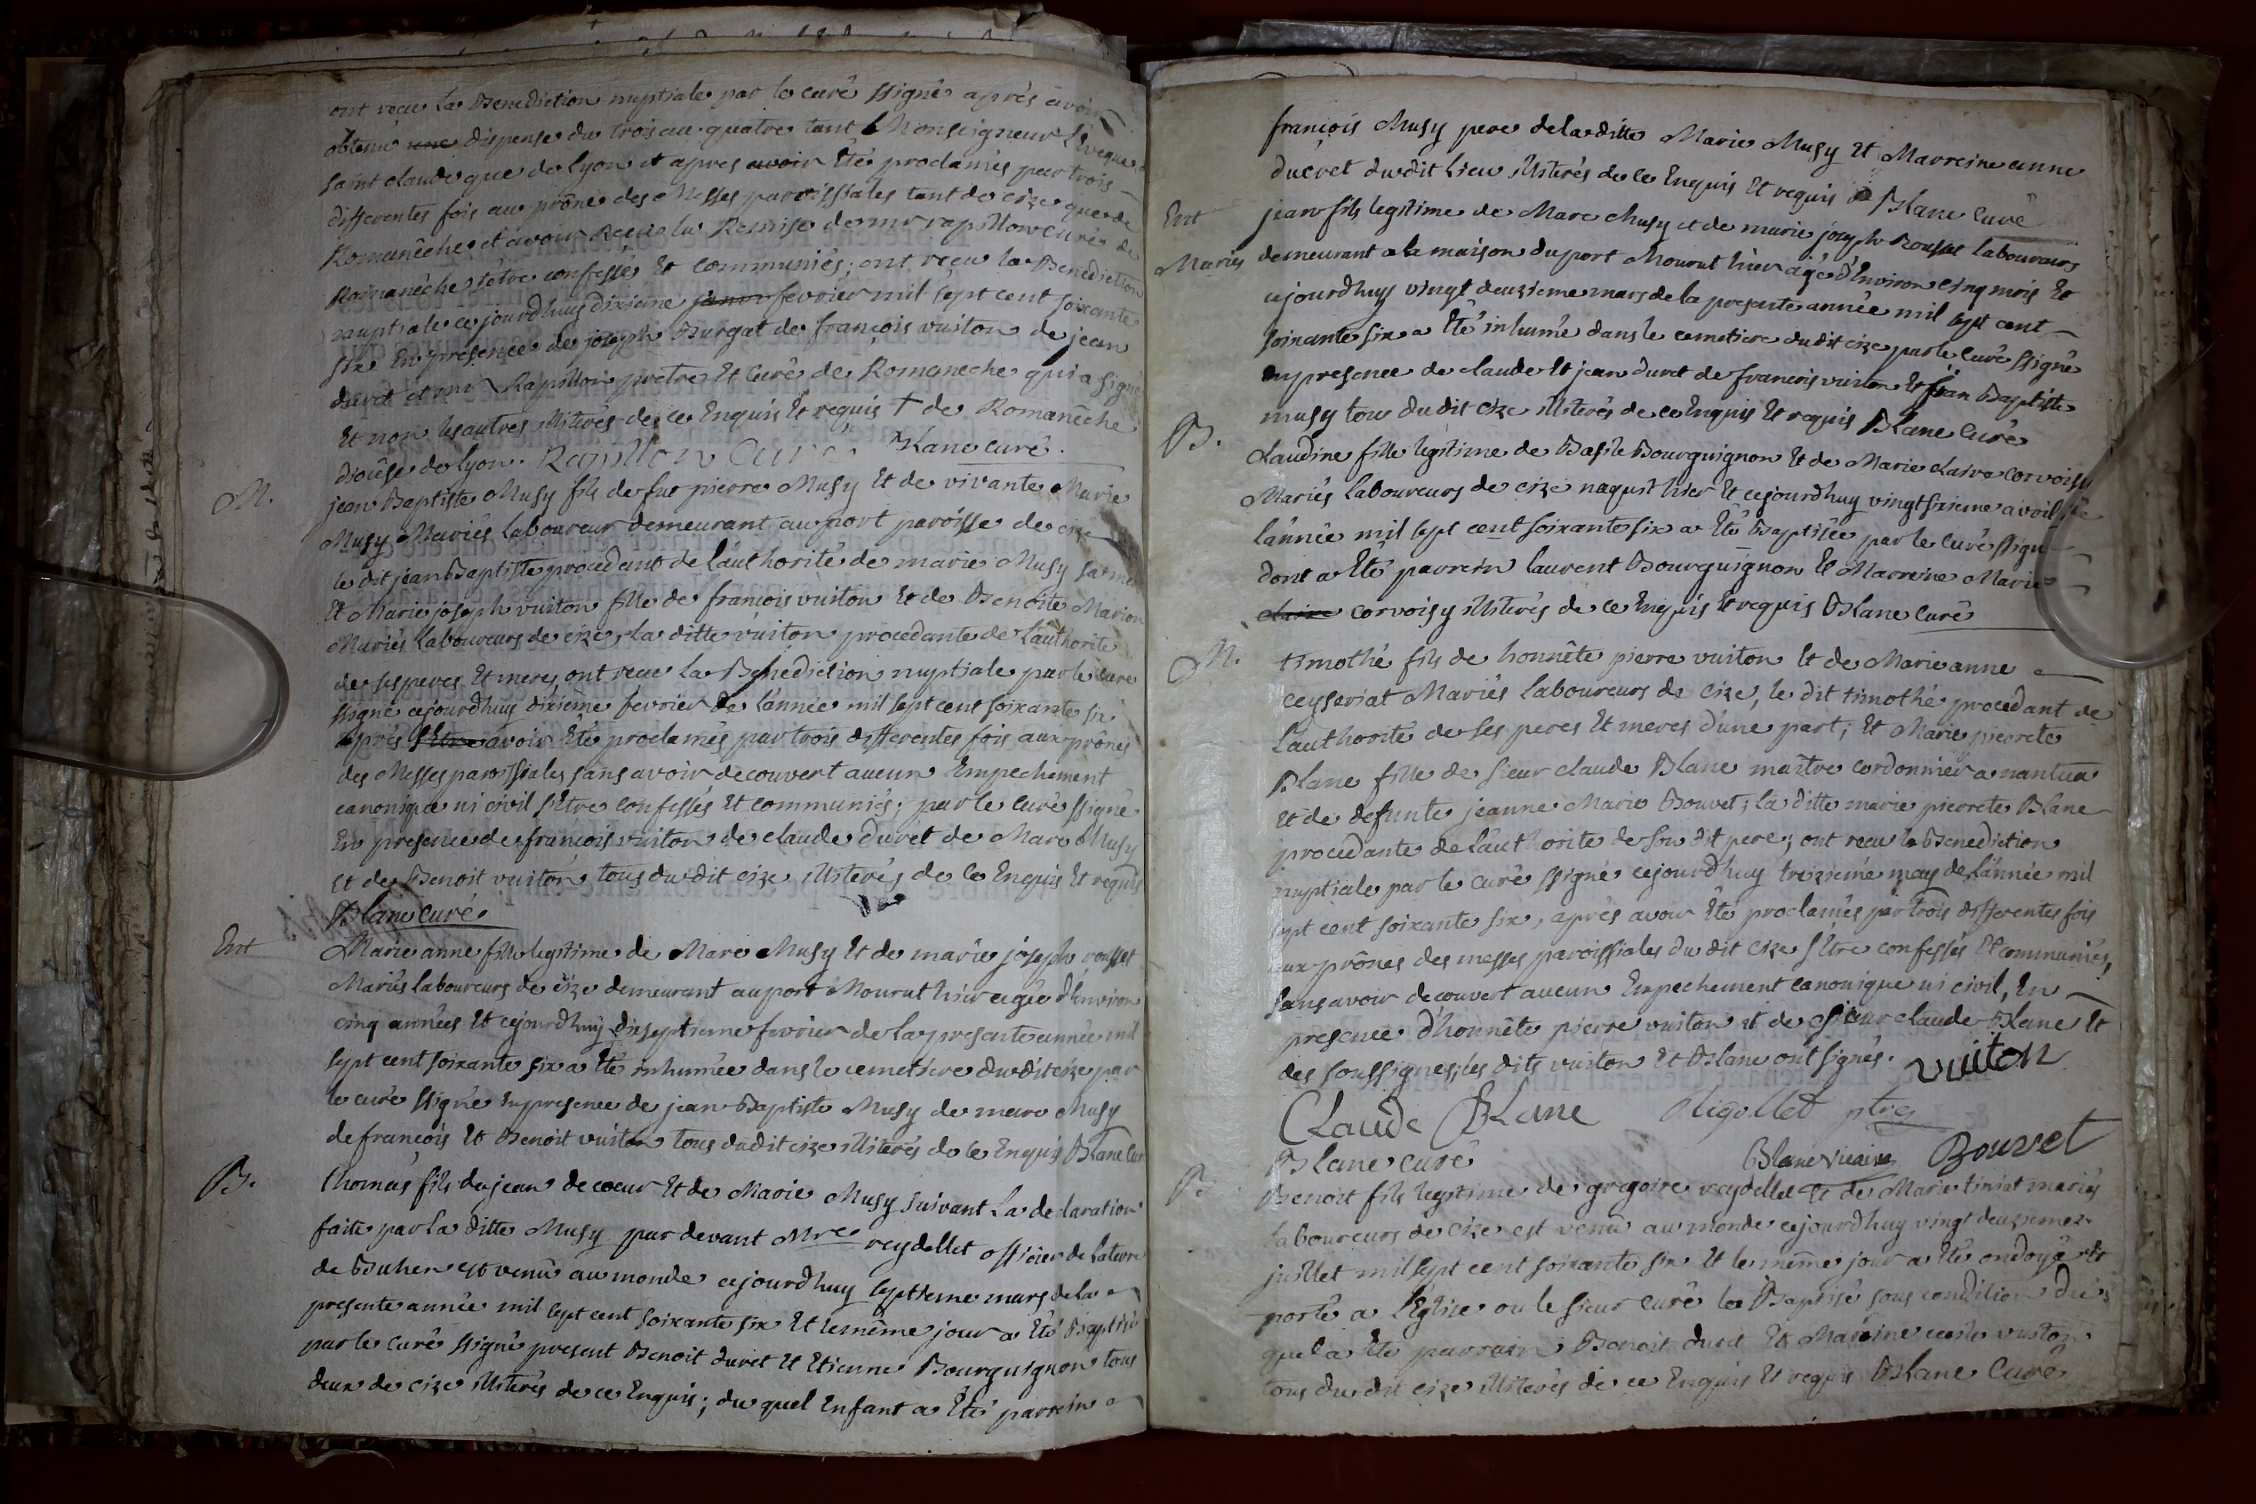 ont recu la Benediction nuptiale par le curé ssigné après avoir
obtenu une dispense du trois au quatre tant Monseigneur L'eveque
saint claude que de lyon et apres avoir Eté proclamés par trois
differentes fois au prône des Messes paroissiales tant de cize que de
Romanêche et avoir Recu la Remise de mr rapillon curé de
Romanêche s'etre confessés Et communiés; ont recu la Benediction
nuptiale cejourdhuy dixieme janv fevrier mil sept cent soixante
six En presence de joseph Burgat de françois vuiton de jean
duret et mr Rapillon pretre Et Curé de Romaneche qui a signé
Et non les autres illiterés de ce Enquis Et requis † de Romanêche
diocèse de lyon. Rapillon Curé. Blanc curé.
M.
jean Baptiste Musy fils de fut pierre Musy Et de vivante Marie
Musy Mariés laboureur demeurant au port paroisse de cize
le dit jean Baptiste procedant de l'authorité de marie Musy sa mere
Et Marie joseph vuiton fille de françois vuiton Et de Benoite Marion
Mariés laboureurs de cize, la ditte vuiton procedante de l'authorité
de ses peres Et meres ont recu la Benediction nuptiale par le curé
ssigné cejourdhuy dixiême fevrier de l'année mil sept cent soixante six
après s'Etre avoir Eté proclamés par trois differentes fois aux prônes
des Messes paroissiales sans avoir decouvert aucun Empechement
canonique ni civil s'Etre confessés Et communiés; par le curé ssigné
En presence de françois vuiton de claude duret de Marc Musy
et de Benoit vuiton tous du dit cize illiterés de ce Enquis Et requis
Blanc curé.
Ent
Marie anne fille legitime de Marc Musy Et de marie joseph rousset
Mariés laboureurs de cize demeurant au port Mourut hier agée d'Environ
cinq années Et cejourdhuy dixseptieme fevrier de la presente année mil
sept cent soixante six a Eté inhumée dans le cemetiere du dit cize par
le curé ssigné En presence de jean Baptiste Musy de marc Musy
de francois Et Benoit vuiton tous du dit cize illiterés de ce Enquis Blanc Cur
B.
thomas fils de jean de coeur Et de Marie Musy suivant la declaration
faite par la ditte Musy par devant Mre reydellet officier de la terre
de Buhen est venu au monde cejourdhuy septieme mars de la
presente année mil sept cent soixante six Et le même jour a Eté Baptisé
par le curé ssigné present Benoit duret Et Etienne Bourguignon tous
deux de cize illiterés de ce Enquis; du quel Enfant a Eté parrein
françois Musy pere de la ditte Marie Musy Et Marreine anne
ducret du dit Lieu illiterés de ce Enquis Et requis Blanc curé
Ent
Mariés
jean fils legitime de Marc Musy et de marie joseph Rousset laboureurs
demeurant a la maison du port Mourut hier agé d'Environ cinq mois Et
cejourdhuy vingt deuzieme mars de la presente année mil sept cent
soixante six a Eté inhumé dans le cemetiere du dit cize par le curé ssigné
En presence de claude Et jean duret de francois vuiton Et jean Baptiste
musy tous du dit cize illiterés de ce Enquis Et requis Blanc Curé
B.
Claudine fille legitime de Basile Bourguignon Et de Marie claire corvoisy
Mariés laboureurs de cize naquit hier Et cejourdhuy vingtsixieme avril de
l'année mil sept cent soixante six a Eté Baptisée par le curé ssigné
dont a Eté parrein laurent Bourguignon Et Marreine Marie
claire corvoisy illiterés de ce Enquis Et requis Blanc curé
M.
timothé fils de honnête pierre vuiton Et de Marie anne
ceyseriat Mariés laboureurs de cize, le dit timothé procedant de
l'authorité de ses peres Et meres d'une part; Et Marie pierrete
Blanc fille de sieur claude Blanc maître cordonnier a nantua
et de defunte jeanne Marie Bouvet; la ditte marie pierrete Blanc
procedante de l'authorité de son dit pere; ont recu la Benediction
nuptiale par le curé ssigné cejourdhuy treiziemé may de l'année mil
sept cent soixante six, après avoir Eté proclamés par trois differentes fois
aux prônes des messes paroissiales du dit cize s'Etre confessés Et communiés,
sans avoir decouvert aucun Empechement canonique ni civil, En
presence d'honnête pierre vuiton et de sieur claude Blanc Et
des soussignes; les dits vuiton Et Blanc ont signés. vuiton
Claude Blanc ptre
Blanc curé Blanc vicaire Bouvet
B.
Benoit fils legitime de gregoire reydellet Et de Marie mariés
laboureurs de cize est venu au monde cejourdhuy vingt deuzieme
juillet mil sept cent soixante six Et le même jour a Eté ondoyé Et
porté a l'Eglise ou le sieur curé la Baptisé sous condition du
quel a Eté parrain Benoit duret Et Maraine vuiton
tous du dit cize illiterés de ce Enquis Et requis Blanc Curé